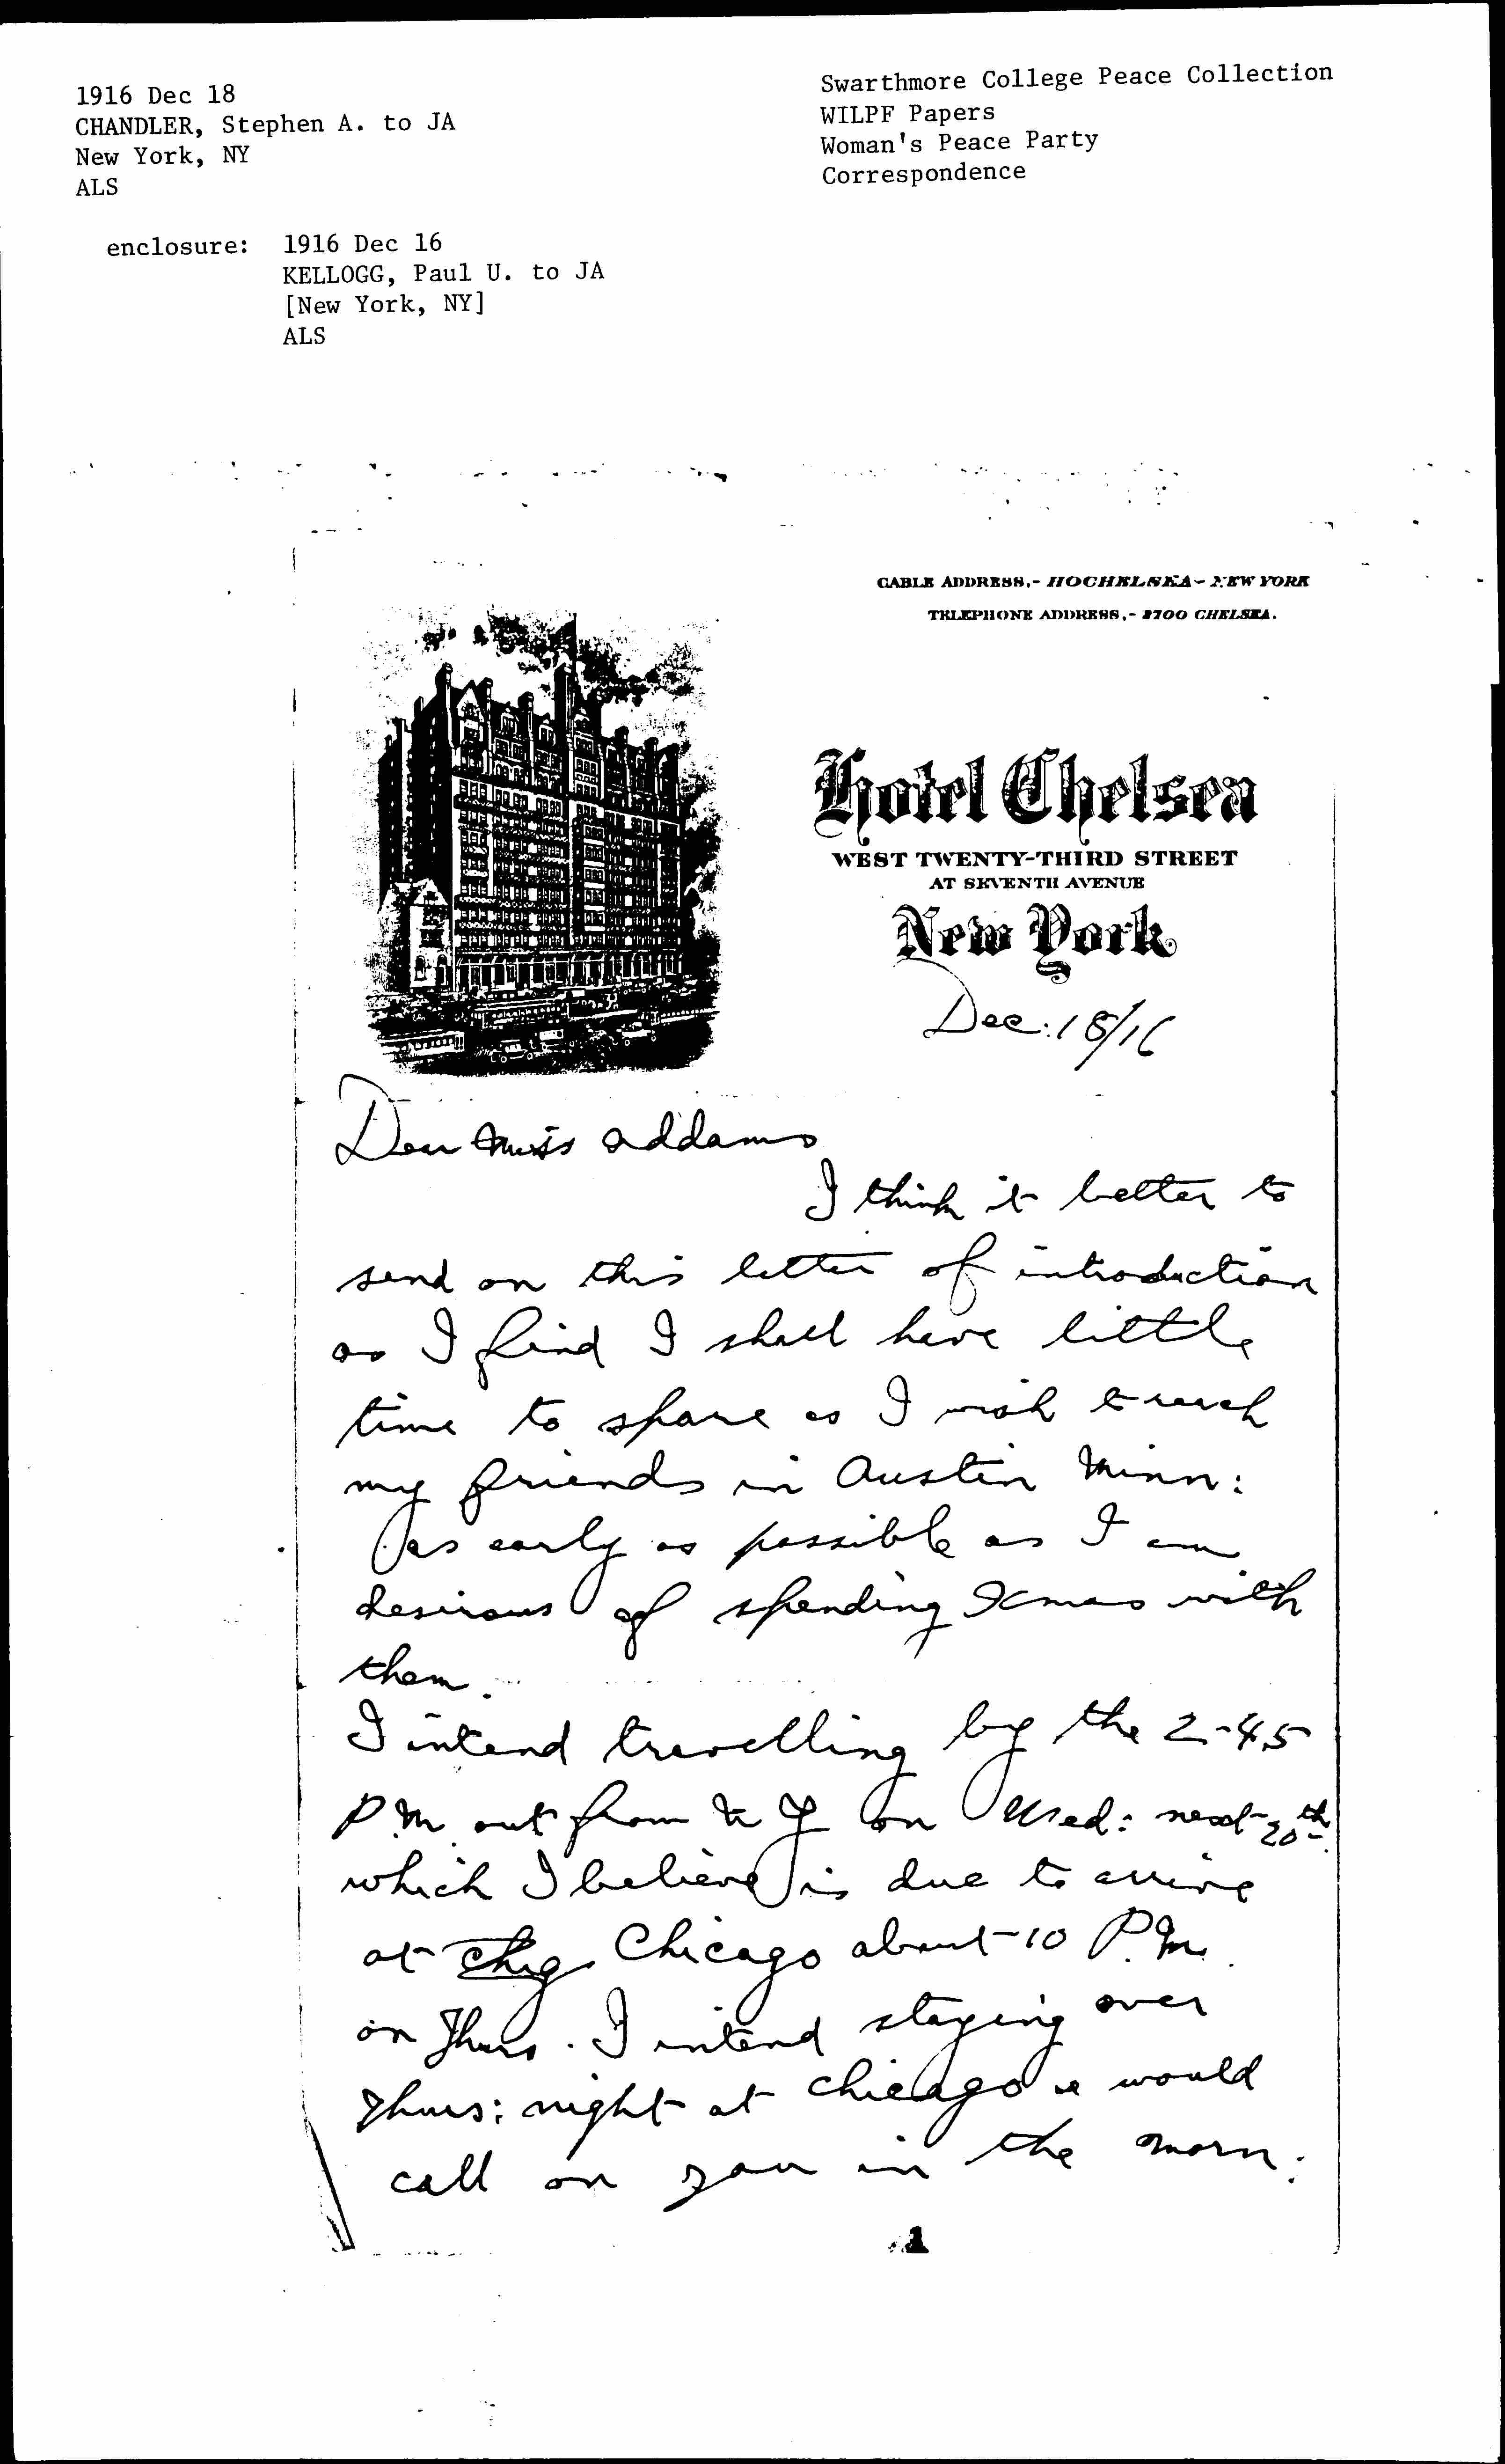 1916 Dec 18
CHANDLER, Stephen A. to JA
New York, NY
ALS
enclosure: 1916 Dec 16
KELLOGG, Paul U. to JA
[New York, NY]
ALS
Swarthmore College Peace Collection
WILPF Papers
Woman's Peace Party
Correspondence
CABLE ADDRESS,- HOCHELSEA - NEW YORK
TELEPHONE ADDRESS,- 2700 CHELSEA.
Hotel Chelsea
WEST TWENTY-THIRD STREET
AT SEVENTH AVENUE
New York
Dec: 18/16
Dear Miss Addams
I think it better to
send on this letter of introduction
as I find I shall have little
time to spare as I wish to reach
my friends in Austin Minn:
as early as possible as I am
desirous of spending Xmas with
them.
I intend travelling by the 2-45
P.M. out from N Y on Wed: next 20th.
which I believe is due to arrive
at Chig Chicago about 10 P.M.
on Thurs. I intend staying over
Thurs: night at Chicago & would
call on you in the morn:
1